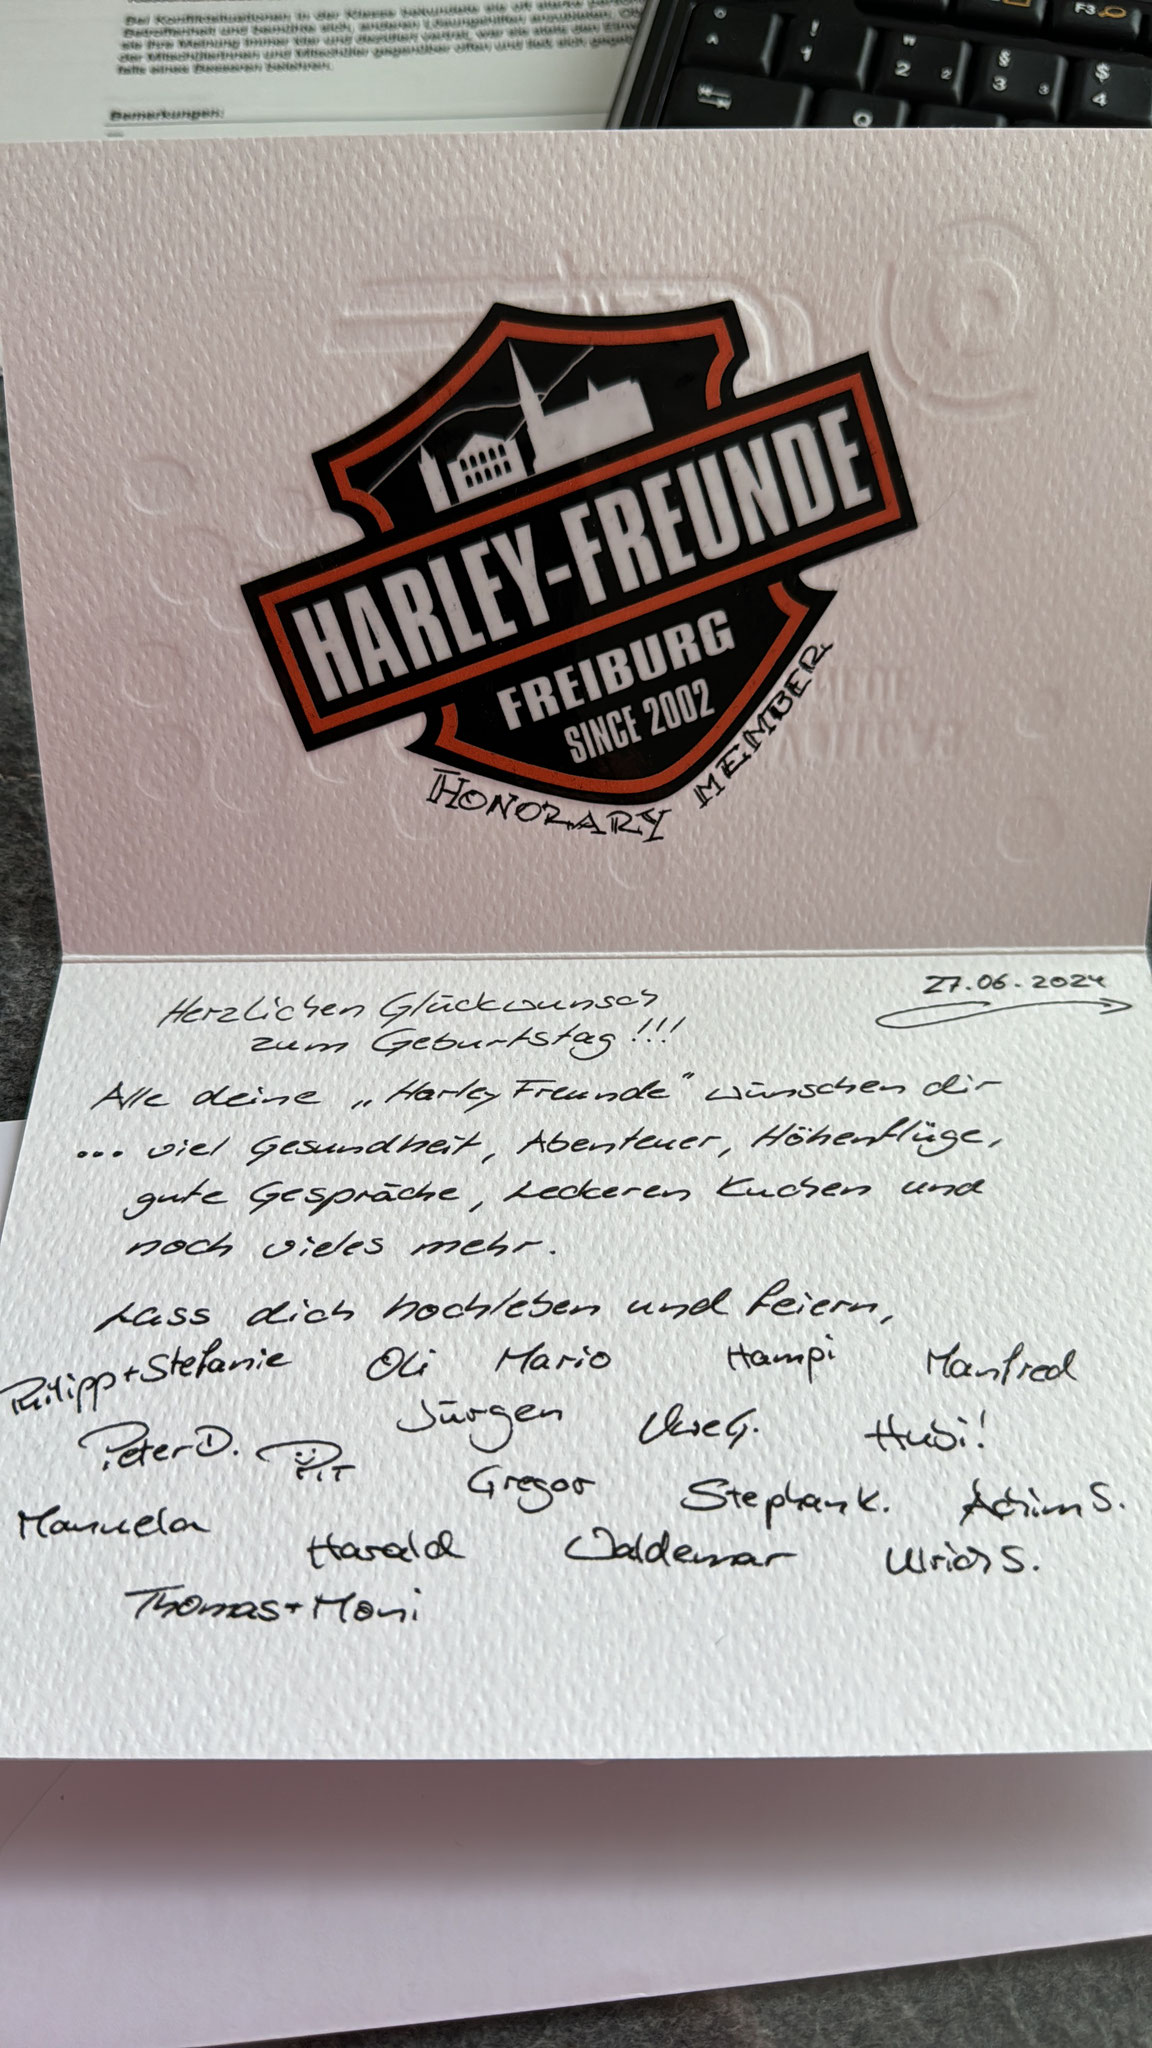 Bei Konfliktsituationen in der Klasse bekundete sie oft starke
Betroffenheit und bemühte sich, anderen Lösungshilfen anzubieten.
sie ihre Meinung immer klar und dezidiert vertrat, war sie stets den
der Mitschülerinnen und Mitschüler gegenüber offen und ließ sich
falls eines Besseren belehren.
Bemerkungen:
F3
! " § $
1 2 2 3 3 4
Q
HARLEY-FREUNDE
FREIBURG
SINCE 2002
HONORARY MEMBER
27.06.2024
Herzlichen Glückwunsch
zum Geburtstag!!!
Alle deine „Harley Freunde" wünschen dir
... viel Gesundheit, Abenteuer, Höhenflüge,
gute Gespräche, leckeren Kuchen und
noch vieles mehr.
Lass dich hochleben und feiern,
Philipp+Stefanie Oli Mario Hampi Manfred
Peter D. PIT Jürgen Uwe G. Hubi!
Manuela Gregor Stephan K. Achim S.
Harald Waldemar Ulrich S.
Thomas + Moni